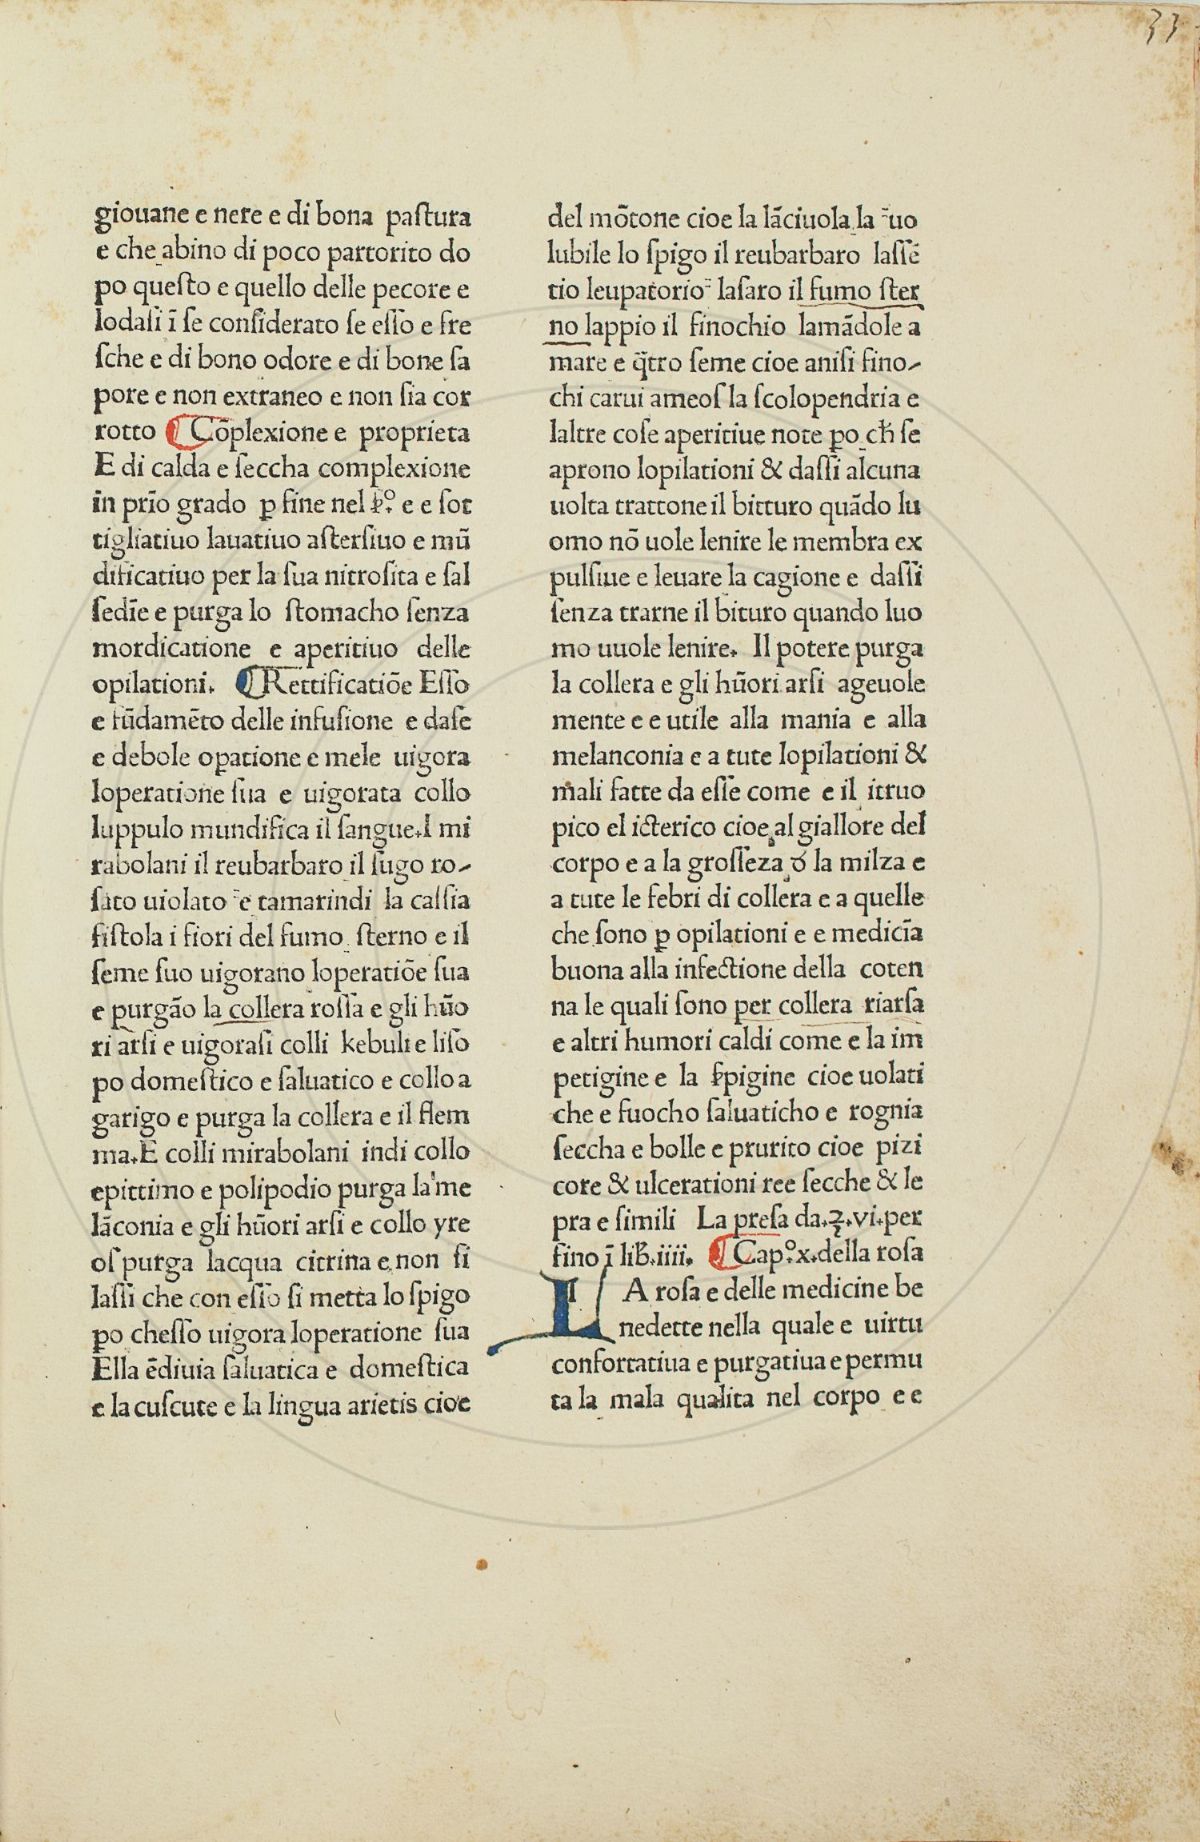 33
giouane e nere e di bona paſtura
e che abino di poco partorito do
po queſto e quello delle pecore e
lodaſi ī ſe conſiderato ſe eſſo e fre
ſche e di bono odore e di bone ſa
pore e non extraneo e non ſia cor
rotto ¶ Cōplexione e proprieta
E di calda e ſeccha complexione
in prīo grado ꝑ fine nel e e ſot
tigliatiuo lauatiuo aſterſiuo e mū
dificatiuo per la ſua nitroſita e ſal
ſedīe e purga lo ſtomacho ſenza
mordicatione e aperitiuo delle
opilationi. ¶ Rettificatiōe Eſſo
e fūdamēto delle infuſione e daſe
e debole oꝑatione e mele uigora
loperatione ſua e uigorata collo
luppulo mundifica il ſangue.I mi
rabolani il reubarbaro il ſugo ro-
ſato uiolato e tamarindi la caſſia
fiſtola i fiori del fumo ſterno e il
ſeme ſuo uigorano loperatiōe ſua
e purgāo la collera roſſa e gli hūo
ri arſi e uigoraſi colli kebuli e liſo
po domeſtico e ſaluatico e collo a
garigo e purga la collera e il flem
ma.E colli mirabolani indi collo
epittimo e polipodio purga la me
lāconia e gli hūori arſi e collo yre
oſ purga lacqua citrina e non ſi
laſſi che con eſſo ſi metta lo ſpigo
ꝑo cheſſo uigora loperatione ſua
Ella ēdiuia ſaluatica e domeſtica
e la cuſcute e la lingua arietis cioe
del mōtone cioe la lāciuola la uo
lubile lo ſpigo il reubarbaro laſſē
tio leupatorio laſaro il fumo ſter
no lappio il finochio lamādole a
mare e q̄tro ſeme cioe aniſi fino-
chi carui ameoſ la ſcolopendria e
laltre coſe aperitiue note ꝑo cħ ſe
aprono lopilationi & daſſi alcuna
uolta trattone il bitturo quādo lu
omo nō uole lenire le membra ex
pulſiue e leuare la cagione e daſſi
ſenza trarne il bituro quando luo
mo uuole lenire. Il potere purga
la collera e gli hūori arſi ageuole
mente e e utile alla mania e alla
melanconia e a tute lopilationi &
mali fatte da eſſe come e il itruo
pico el icterico cioe al giallore del
corpo e a la groſſeza đ la milza e
a tute le febri di collera e a quelle
che ſono ꝑ opilationi e e medicīa
buona alla infectione della coten
na le quali ſono per collera riarſa
e altri humori caldi come e la im
petigine e la ſꝑpigine cioe uolati
che e fuocho ſaluaticho e rognia
ſeccha e bolle e prurito cioe pizi
core & ulcerationi ree ſecche & le
pra e ſimili La preſa da.ʒ.vi.per
fino ī lib̄.iiii. ¶ Cap.º x.della roſa
LA roſa e delle medicine be
nedette nella quale e uirtu
confortatiua e purgatiua e permu
ta la mala qualita nel corpo e e